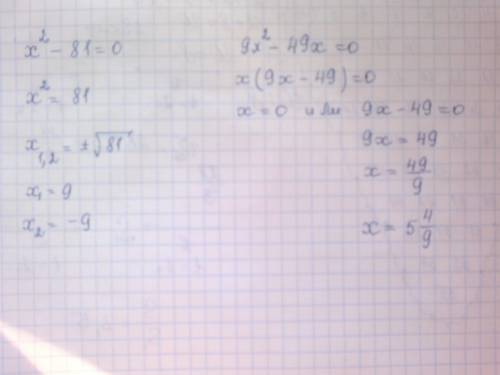 x² - 81 = 0
x² = 81
x₁,₂ = ±√81
x₁ = 9
x₂ = -9
9x² - 49x = 0
x(9x - 49) = 0
x = 0 или 9x - 49 = 0
9x = 49
x = 49/9
x = 5 4/9